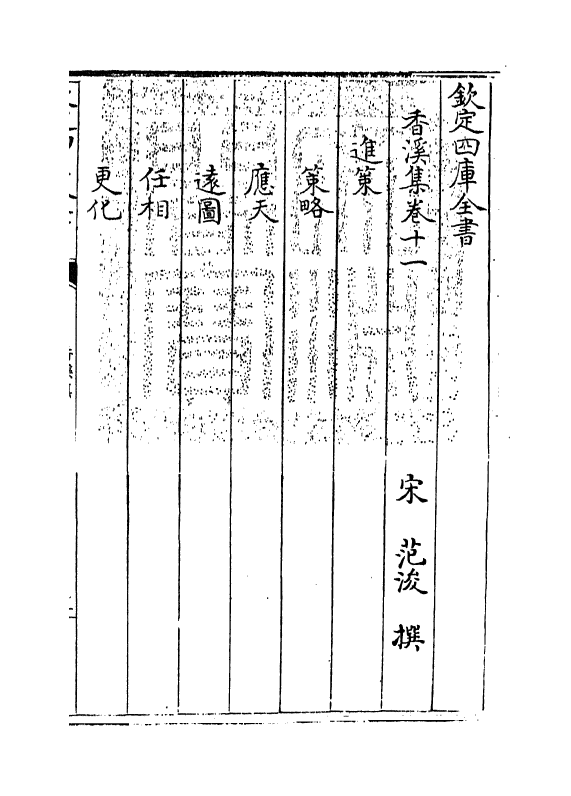 欽定四庫全書
香溪集卷十一
宋 范浚 撰
進策
策略
應天
遠圖
任相
更化